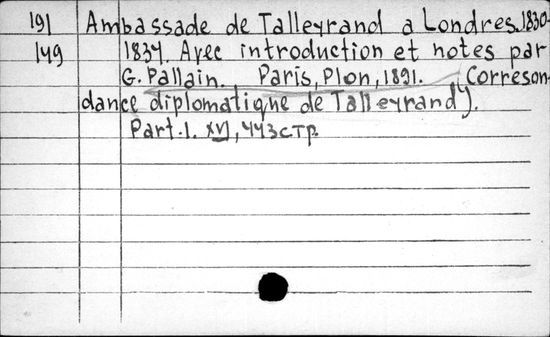 191 Ambassade de Talleyrand a Londres.1830-
149 1834. Avec introduction et notes par
G. Pallain. Paris, Plon, 1891. (Correson-
dance diplomatique de Talleyrand).
Part.1. XVI, 443стр.